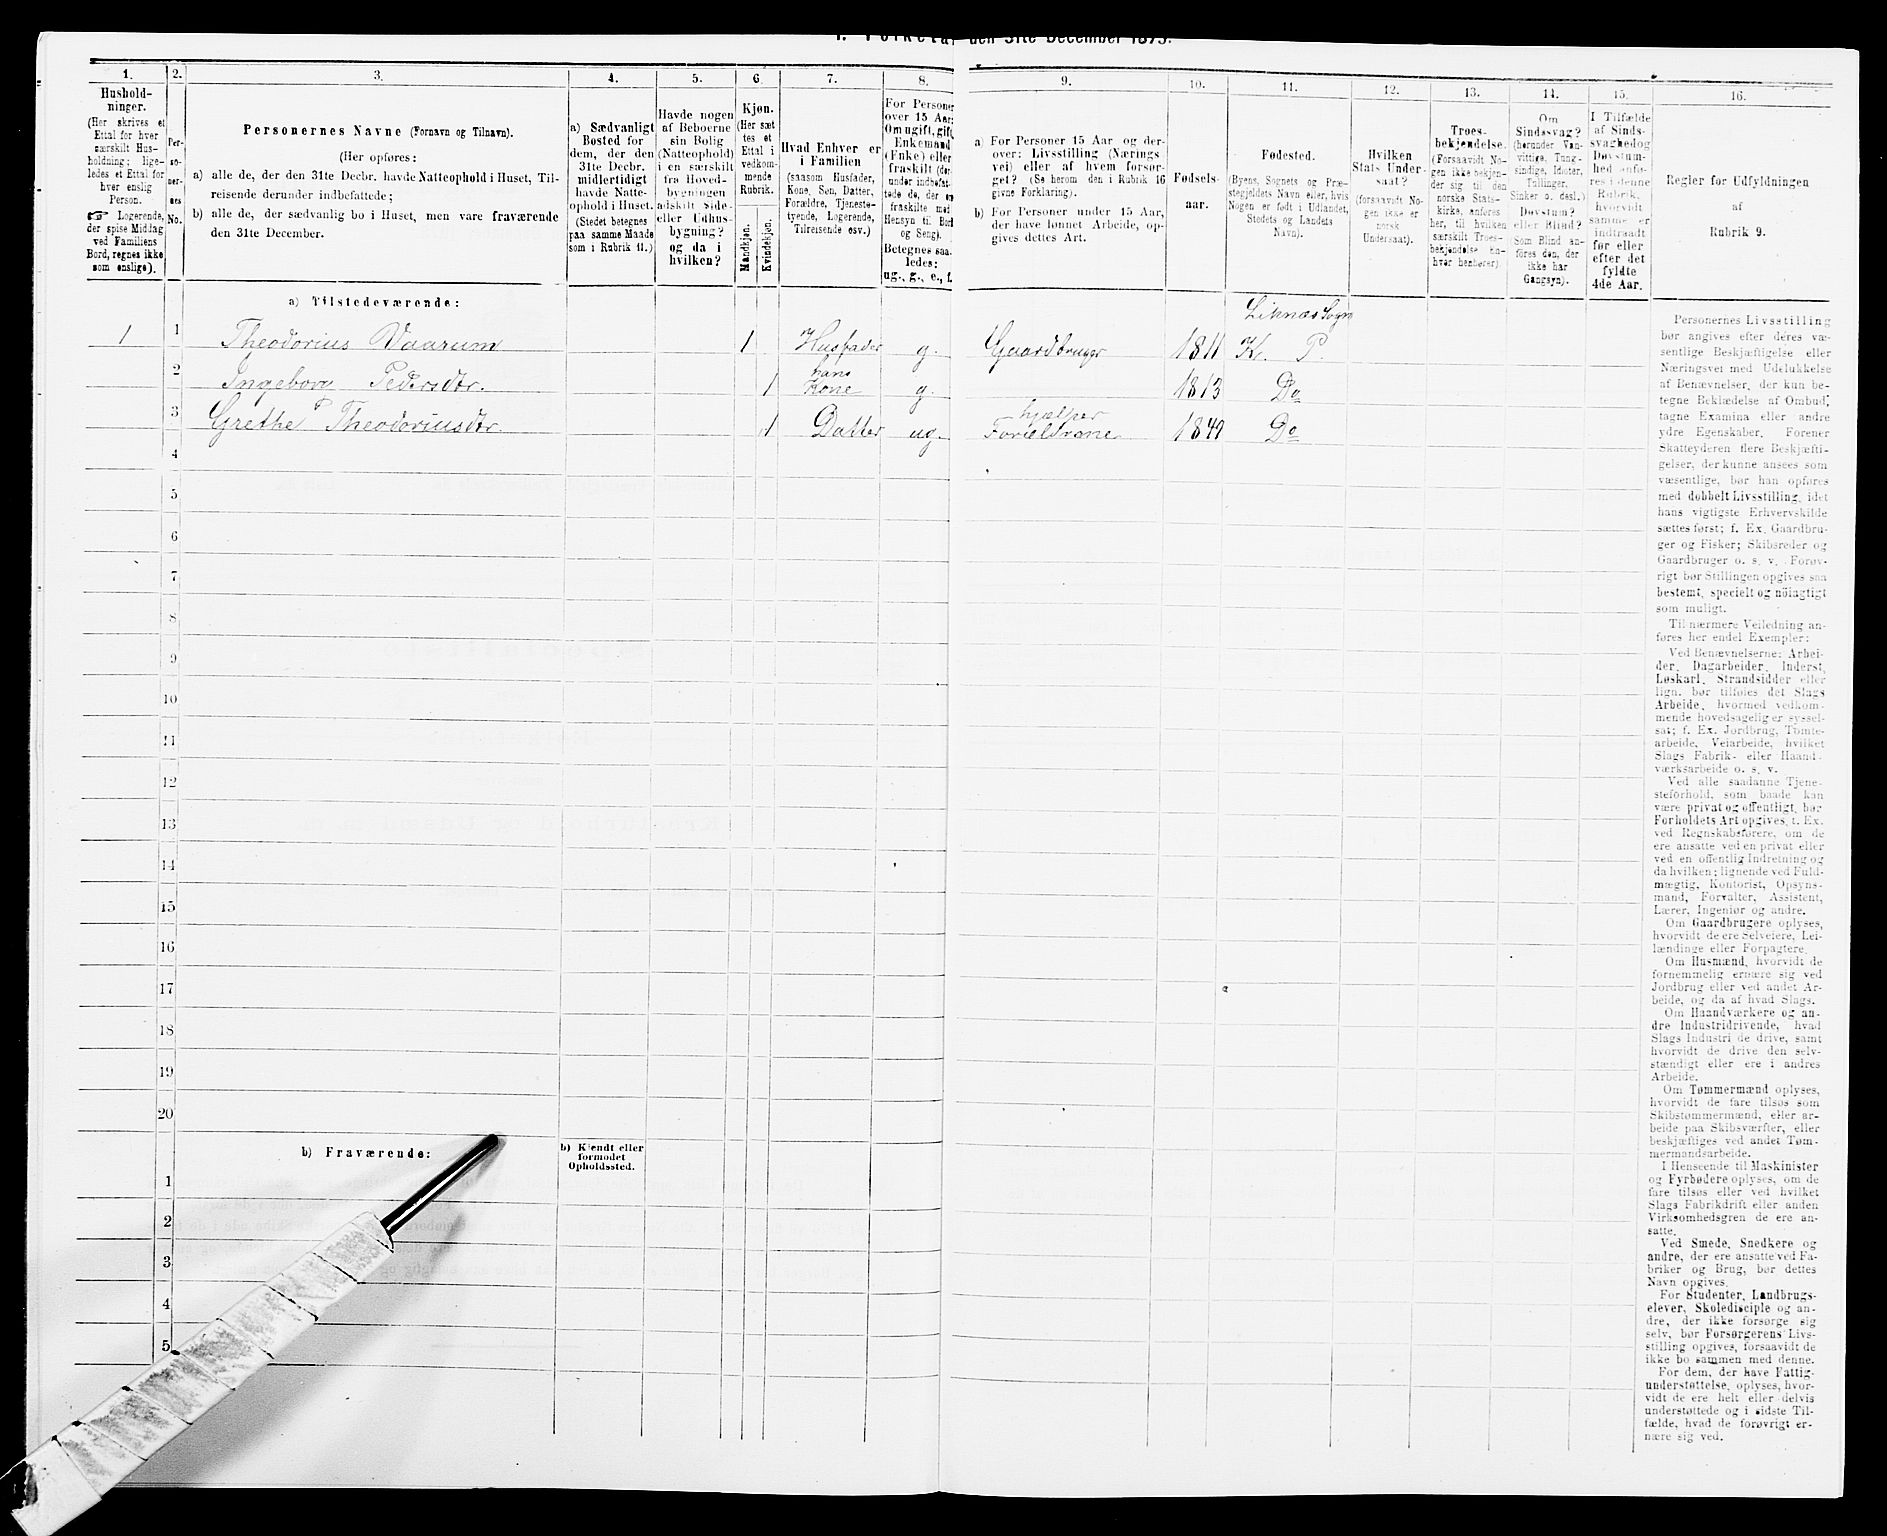 1. Folketal den 31te December 1875.
1. 2. 3. 4. 5. 6. 7. 8. 9. 10. 11. 12. 13. 14. 15. 16.
Hushold-
ninger.
(Her skrives et
Ettal for hver
særskilt Hus-
holdning; lige-
ledes et Ettal for
hver enslig
Person.
☞ Logerende,
der spise Middag
ved Familiens
Bord, regnes ikke
som enslige).
Per-
so-
ner-
nes
No.
Personernes Navne (Fornavn og Tilnavn).
(Her opføres:
a) alle de, der den 31te Decbr. havde Natteophold i Huset, Til-
reisende derunder indbefattede;
b) alle de, der sædvanlig bo i Huset, men vare fraværende
den 31te December.
a) Sædvanligt
Bosted for
dem, der den
31te Decbr.
midlertidigt
havde Natte-
ophold i Huset.
(Stedet betegnes
paa samme Maade
som i Rubrik 11.)
Havde nogen
af Beboerne
sin Bolig
(Natteophold)
i en særskilt
fra Hoved-
bygningen
adskilt Side-
eller Udhus-
bygning?
og da i
hvilken?
Kjøn.
(Her sæt
tes et
Ettal i
vedkom-
mende
Rubrik.
Mandkjøn.
Kvindekjøn.
Hvad Enhver er
i Familien
(saasom Husfader,
Kone, Søn, Datter,
Forældre, Tjeneste-
tyende, Logerende,
Tilreisende osv.)
For Personer
over 15 Aar:
Om ugift, gift,
Enkemand
(Enke) eller
fraskilt (der-
under indbefat-
tede de, der ere
fraskilte med
Hensyn til Bord
og Seng).
Betegnes saa-
ledes:
ug., g., e., f.
a) For Personer 15 Aar og der-
over: Livsstilling (Nærings-
vei) eller af hvem forsør-
get? (Se herom den i Rubrik 16
givne Forklaring).
b) For Personer under 15 Aar,
der have lønnet Arbeide, op-
gives dettes Art.
Fødsels-
aar.
Fødested.
(Byens, Sognets og Præ-
stegjeldets Navn eller, hvis
Nogen er født i Udlandet,
Stedets og Landets
Navn).
Hvilken
Stats Under-
saat?
(forsaavidt No-
gen ikke er
norsk
Undersaat).
Troes-
bekjendelse.
(Forsaavidt No-
gen ikke bekjen-
der sig til den
norske Stats-
kirke, anføres
her, til hvilken
særskilt Troes-
bekjendelse En-
hver henhører).
Om
Sindssvag?
(herunder Van-
vittige, Tung-
sindige, Idioter,
Tullinger,
Sinker o. desl.)
Døvstum?
eller Blind?
Som Blind an-
føres den, der
ikke har
Gangsyn).
I Tilfælde
af Sinds-
svaghed og
Døvstum-
hed anfø-
res i denne
Rubrik,
hvorvidt
samme er
indtraadt
før eller
efter det
fyldte
4de Aar.
Regler for Udfyldningen
af
Rubrik 9.
a) Tilstedeværende:
Liknæs Sogn
1 1 Theodorius Vaarum 1 Husfader g. Gaardbruger 1811 K. P.
hans
2 Ingeborg Pedersdtr. 1 Kone g. 1813 Do
hjælper
3 Grethe P Theodoriusdtr. 1 Datter ug. Forældrene 1849 Do
4
5
6
7
8
9
10
11
12
13
14
15
16
17
18
19
20
b) Fraværende:
b) Kjendt eller
formodet
Opholdssted.
1
2
3
4
5
Personernes Livsstilling
bør angives efter deres væ-
sentlige Beskjæftigelse eller
Næringsvei med Udelukkelse
af Benævnelser, der kun be-
tegne Beklædelse af Ombud,
tagne Examina eller andre
ydre Egenskaber. Forener
Skatteyderen flere Beskjæfti-
gelser, der kunne ansees som
væsentlige, bør han opføres
med dobbelt Livsstilling, idet
hans vigtigste Erhvervskilde
sættes først; f. Ex. Gaardbru-
ger og Fisker; Skibsreder og
Gaardbruger o. s. v. Forøv-
rigt bør Stillingen opgives saa
bestemt, specielt og nöiagtigt
som muligt.
Til nærmere Veiledning an-
føres her endel Exempler:
Ved Benævnelserne: Arbei-
der, Dagarbeider, Inderst,
Løskarl, Strandsidder eller
lign. bør tilføies det Slags
Arbeide, hvormed vedkom-
mende hovedsagelig er syssel-
sat; f. Ex. Jordbrug, Tomte-
arbeide, Veiarbeide, hvilket
Slags Fabrik- eller Haand-
værksarbeide o. s. v.
Ved alle saadanne Tjene-
steforhold, som baade kan
være privat og offentligt, bør
Forholdets Art opgives, f. Ex.
ved Regnskabsførere, om de
ere ansatte ved en privat eller
ved en offentlig Indretning og
da hvilken; lignende ved Fuld-
mægtig, Kontorist, Opsyns-
mand, Forvalter, Assistent,
Lærer, Ingeniør og andre.
Om Gaardbrugere oplyses,
hvorvidt de ere Selveiere, Lei-
lændinge eller Forpagtere.
Om Husmænd, hvorvidt de
fornemmelig ernære sig ved
Jordbrug eller ved andet Ar-
beide, og da af hvad Slags.
Om Haandværkere og an-
dre Industridrivende, hvad
Slags Industri de drive, samt
hvorvidt de drive den selv-
stændigt eller ere i andres
Arbeide.
Om Tømmermænd oplyses,
hvorvidt de fare tilsøs som
Skibstømmermænd, eller ar-
beide paa Skibsværfter, eller
beskjæftiges ved andet Tøm-
mermandsarbeide.
I Henseende til Maskinister
og Fyrbødere oplyses, om de
fare tilsøs eller ved hvilket
Slags Fabrikdrift eller anden
Virksomhedsgren de ere an-
satte.
Ved Smede, Snedkere og
andre, der ere ansatte ved Fa-
briker og Brug, bør dettes
Navn opgives.
For Studenter, Landbrugs-
elever, Skoledisciple og an-
dre, der ikke forsørge sig
selv, bør Forsørgerens Livs-
stilling opgives, forsaavidt de
ikke bo sammen med denne.
For dem, der have Fattig-
understøttelse, oplyses, hvor-
vidt de ere helt eller delvis
understøttede og i sidste Til-
fælde, hvad de forøvrigt er-
nære sig ved.